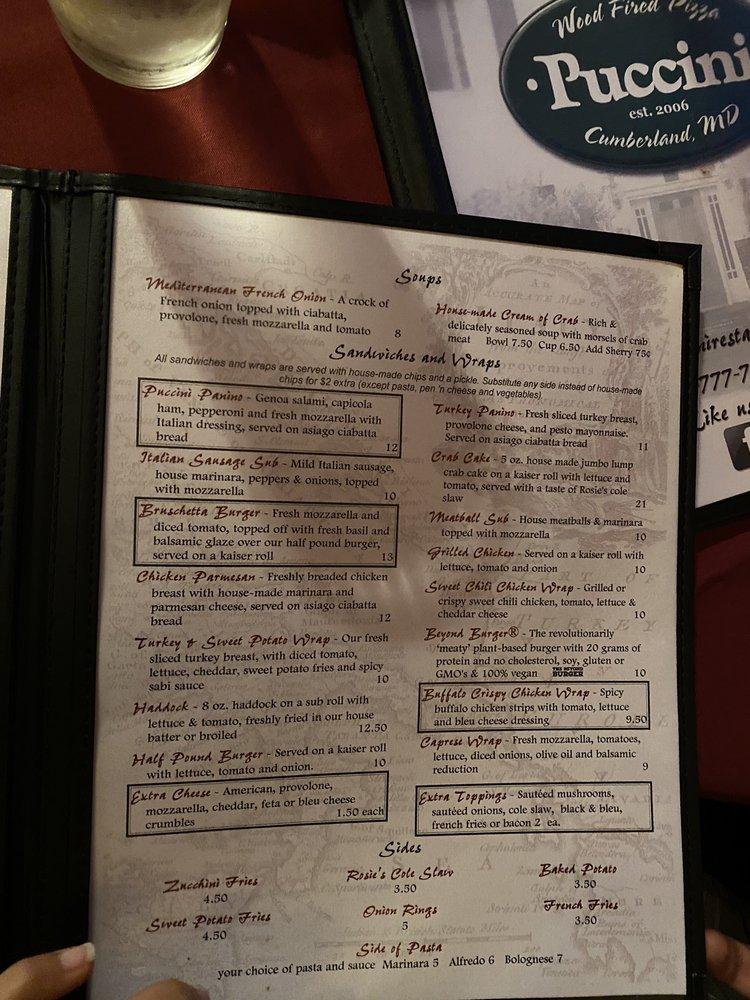 Wood Fired Pizza
Puccini
est. 2006
Cumberland, MD
777-7
Like
Soups
Mediterranean French Onion - A crock of
French onion topped with ciabatta,
provolone, fresh mozzarella and tomato 8
House-made Cream of Crab - Rich &
delicately seasoned soup with morsels of crab
meat Bowl 7.50 Cup 6.50 Add Sherry 75¢
Sandwiches and Wraps
All sandwiches and wraps are served with house-made chips and a pickle. Substitute any side instead of house-made
chips for $2 extra (except pasta, pen 'n cheese and vegetables)
Puccini Panino - Genoa salami, capicola
ham, pepperoni and fresh mozzarella with
Italian dressing, served on asiago ciabatta
bread 12
Italian Sausage Sub - Mild Italian sausage,
house marinara, peppers & onions, topped
with mozzarella 10
Bruschetta Burger - Fresh mozzarella and
diced tomato, topped off with fresh basil and
balsamic glaze over our half pound burger,
served on a kaiser roll 13
Chicken Parmesan - Freshly breaded chicken
breast with house-made marinara and
parmesan cheese, served on asiago ciabatta
bread 12
Turkey & Sweet Potato Wrap - Our fresh
sliced turkey breast, with diced tomato,
lettuce, cheddar, sweet potato fries and spicy
sabi sauce 10
Haddock - 8 oz. haddock on a sub roll with
lettuce & tomato, freshly fried in our house
batter or broiled 12.50
Half Pound Burger - Served on a kaiser roll
with lettuce, tomato and onion. 10
Extra Cheese - American, provolone,
mozzarella, cheddar, feta or bleu cheese
crumbles 1.50 each
Turkey Panino - Fresh sliced turkey breast,
provolone cheese, and pesto mayonnaise.
Served on asiago ciabatta bread 11
Crab Cake - 5 oz. house made jumbo lump
crab cake on a kaiser roll with lettuce and
tomato, served with a taste of Rosie's cole
slaw 21
Meatball Sub - House meatballs & marinara
topped with mozzarella 10
Grilled Chicken - Served on a kaiser roll with
lettuce, tomato and onion 10
Sweet Chili Chicken Wrap - Grilled or
crispy sweet chili chicken, tomato, lettuce &
cheddar cheese 10
Beyond Burger® - The revolutionarily
'meaty' plant-based burger with 20 grams of
protein and no cholesterol, soy, gluten or
GMO's & 100% vegan THE BEYOND BURGER 10
Buffalo Crispy Chicken Wrap - Spicy
buffalo chicken strips with tomato, lettuce
and bleu cheese dressing 9.50
Caprese Wrap - Fresh mozzarella, tomatoes,
lettuce, diced onions, olive oil and balsamic
reduction 9
Extra Toppings - Sautéed mushrooms,
sautéed onions, cole slaw, black & bleu,
french fries or bacon 2 ea.
Sides
Zucchini Fries
4.50
Rosie's Cole Slaw
3.50
Baked Potato
3.50
Sweet Potato Fries
4.50
Onion Rings
5
French Fries
3.50
Side of Pasta
your choice of pasta and sauce Marinara 5 Alfredo 6 Bolognese 7